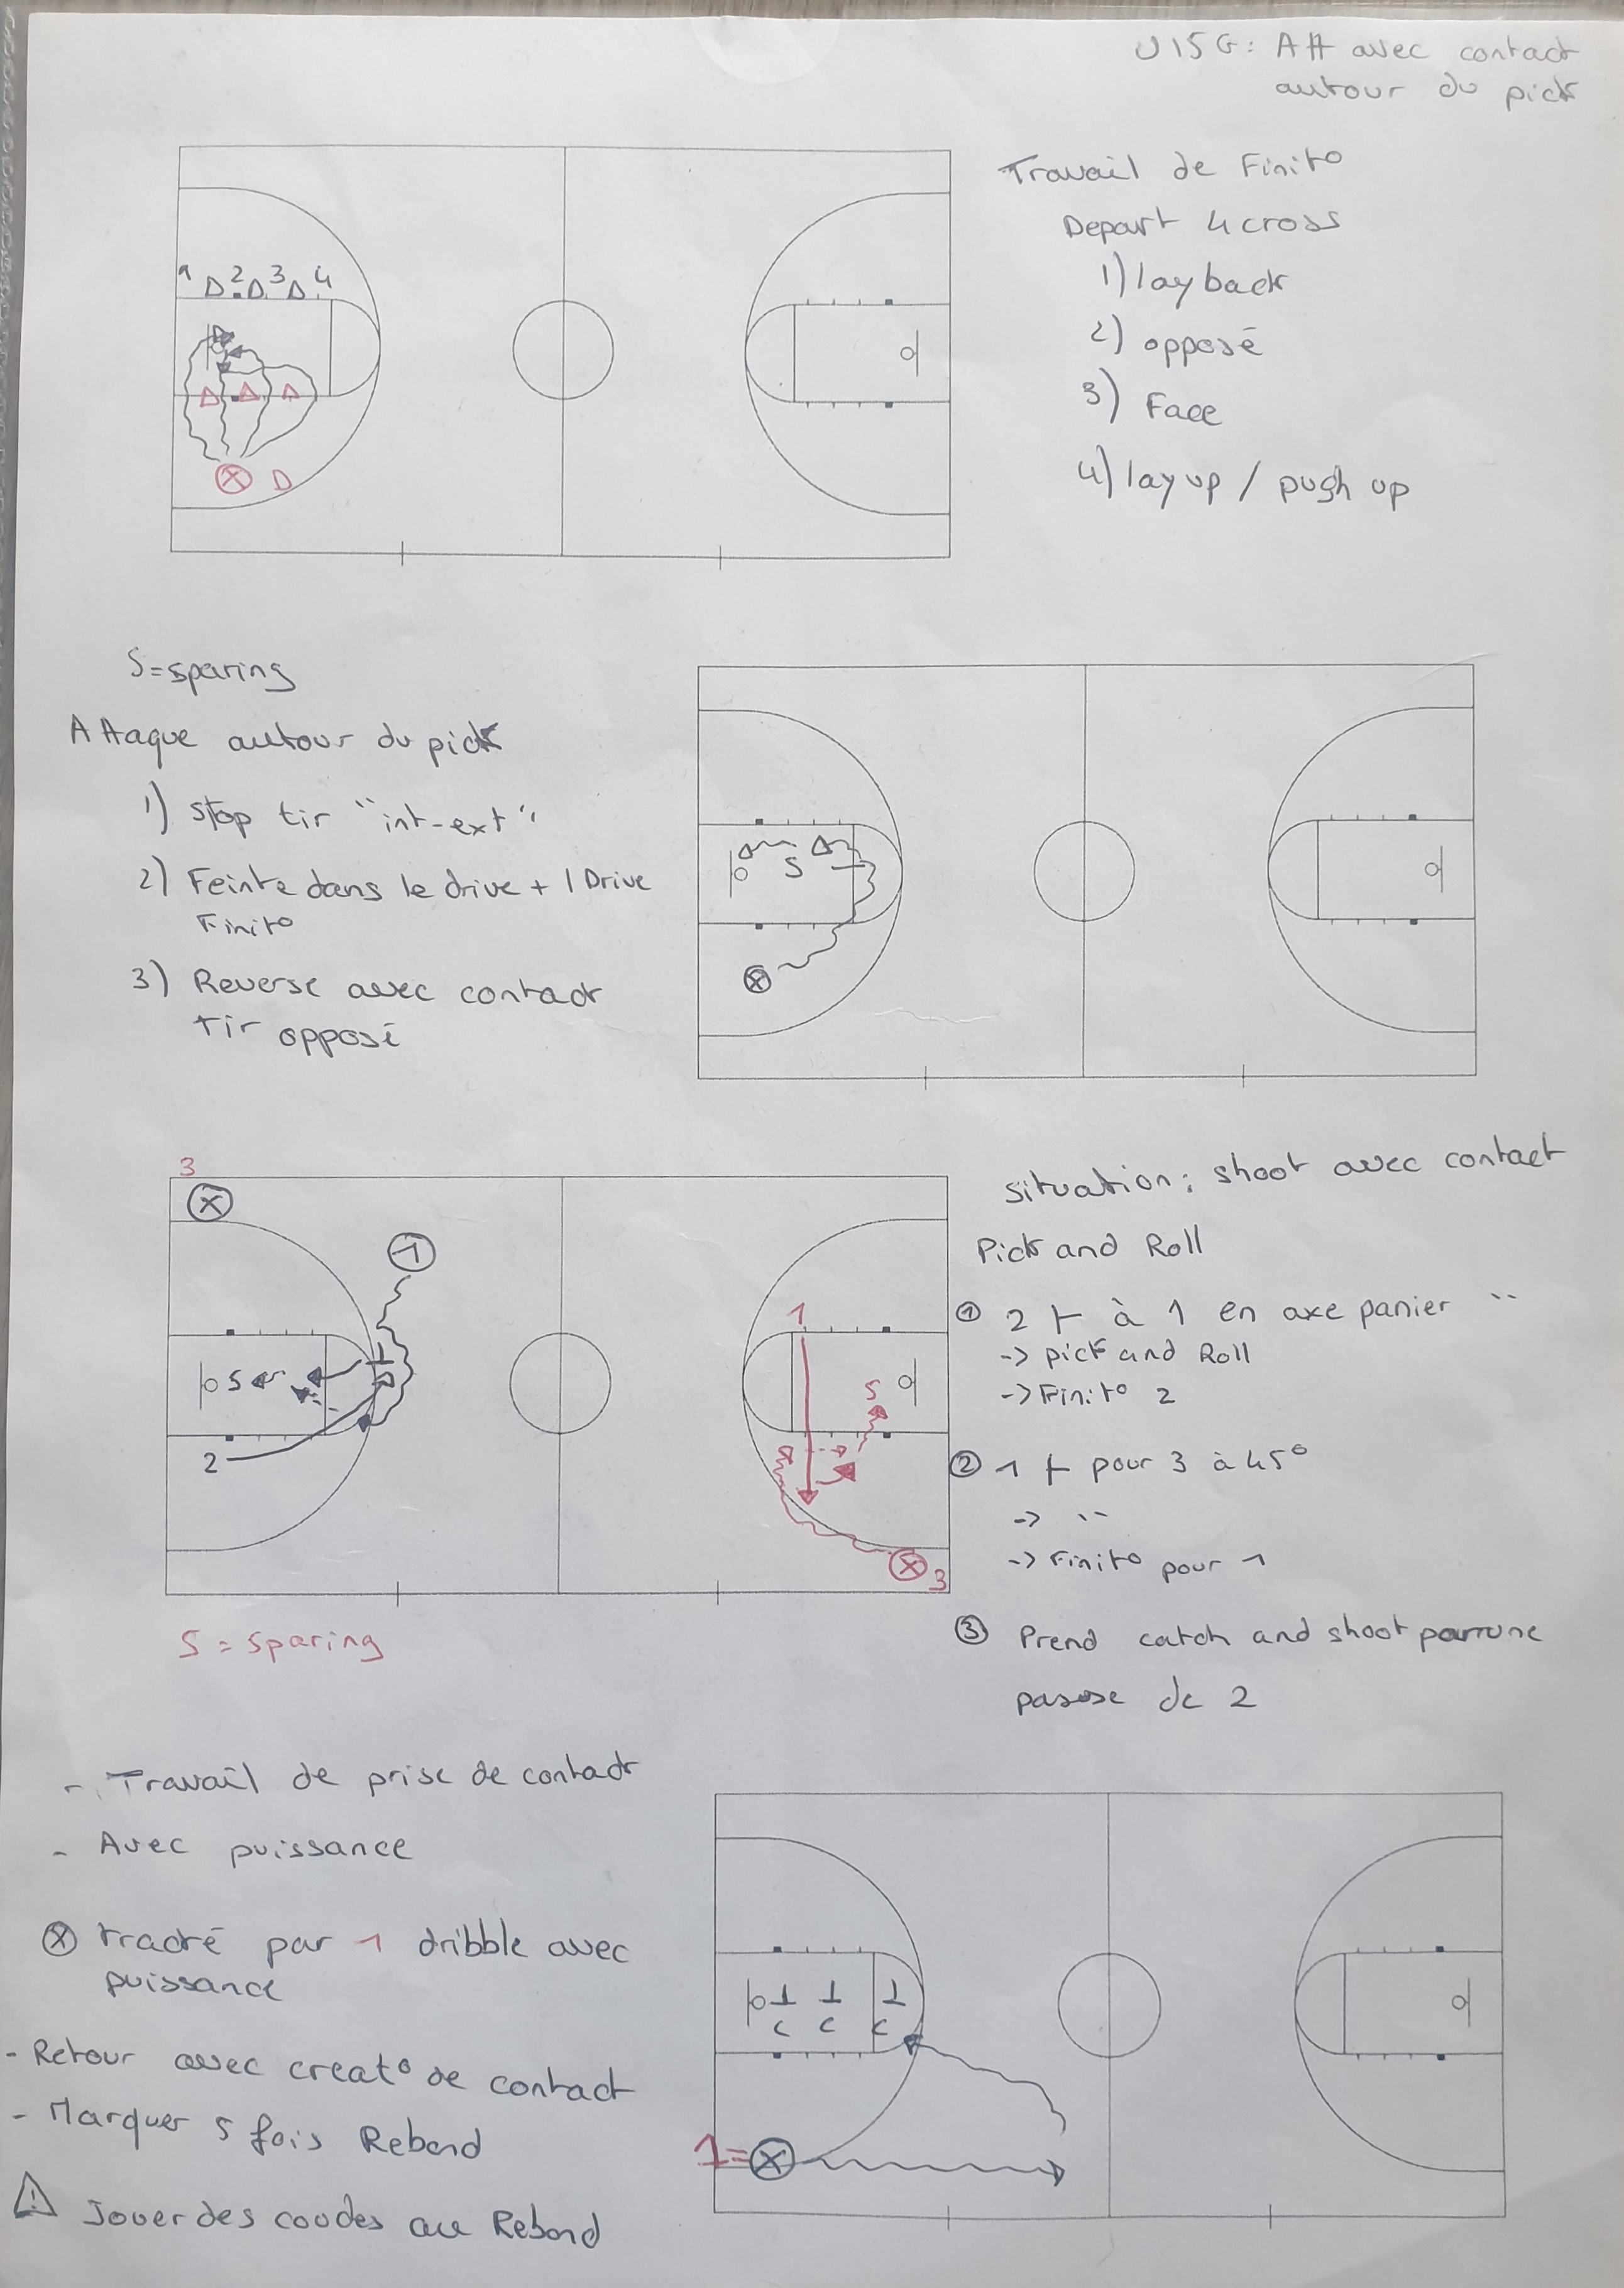 U15G: Att avec contact
autour du pick
Travail de Finit°
Depart 4 cross
1) lay back
2) opposé
3) Face
4) lay up / push up
1 2 3 4
D
S=sparing
Attaque autour du pick
1) Stop tir "int-ext"
2) Feinte dans le drive + 1 Drive
Finit°
3) Reverse avec contact
tir opposé
S
X
3
X
1
S
2
1
S
X 3
S = sparing
situation: shoot avec contact
Pick and Roll
① 2 à 1 en axe panier
-> pick and Roll
-> Finit° 2
② 1 pour 3 à 45°
-> "
-> Finit° pour 1
③ Prend catch and shoot par une
passe de 2
- Travail de prise de contact
- Avec puissance
X tracté par 1 dribble avec
puissance
- Retour avec creat° de contact
- Marquer 5 fois Rebond
⚠ Jouer des coudes au Rebond
C C C
1= X